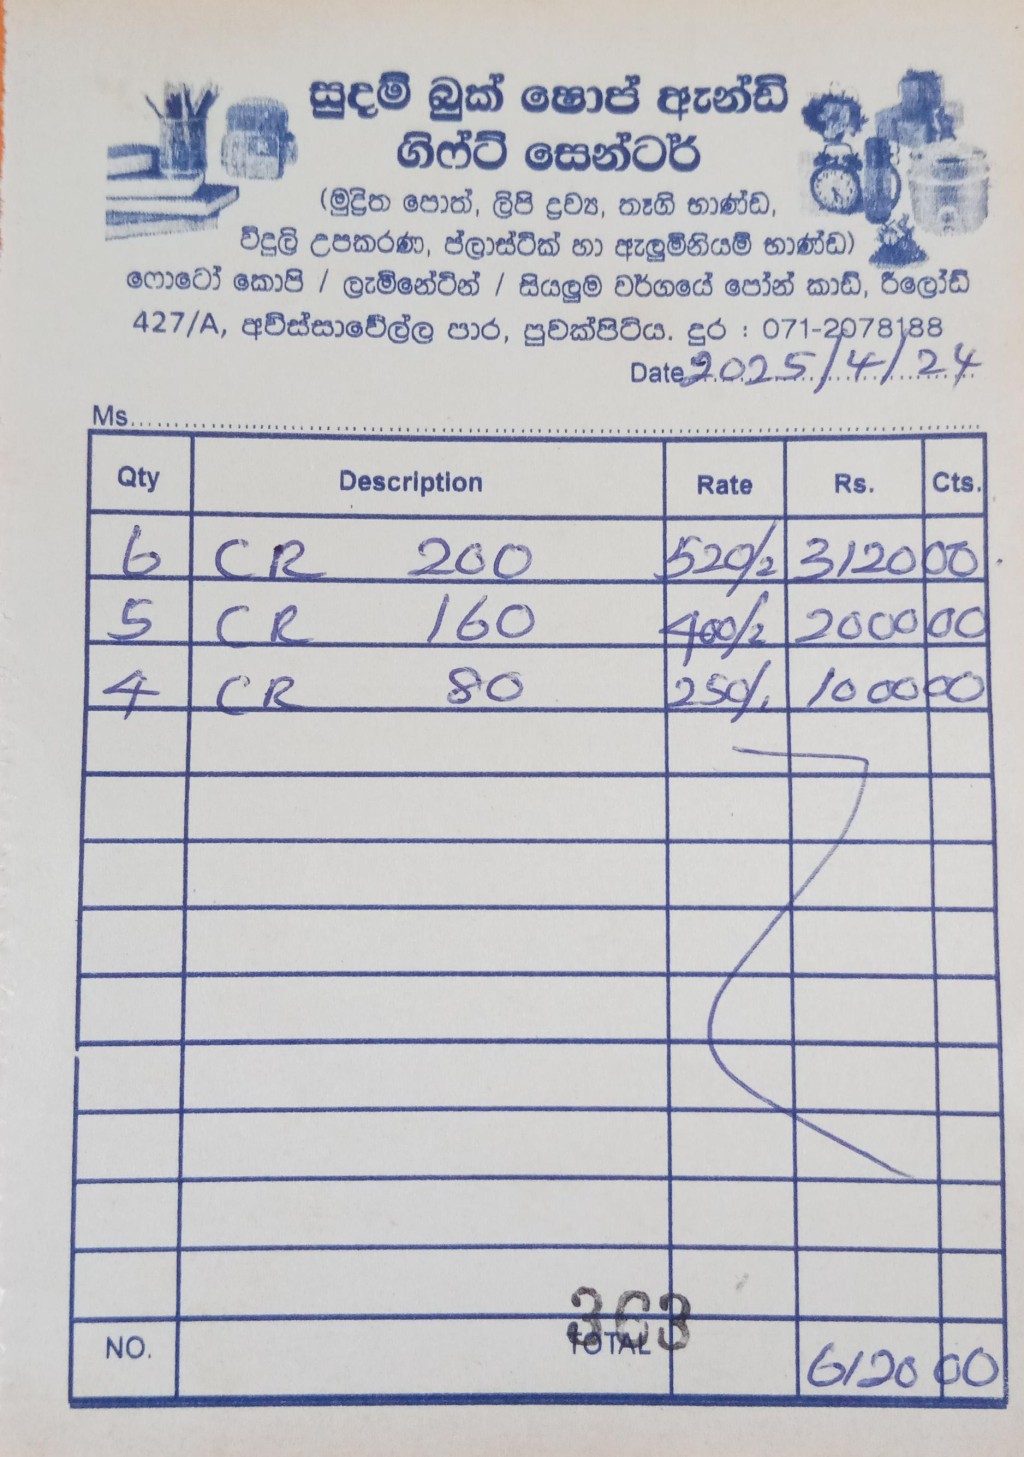 සුදම් බුක් ෂොප් ඇන්ඩ්
ගිෆ්ට් සෙන්ටර්
(මුද්‍රිත පොත්, ලිපි ද්‍රව්‍ය, තෑගි භාණ්ඩ,
විදුලි උපකරණ, ප්ලාස්ටික් හා ඇලුමිනියම් භාණ්ඩ)
ෆොටෝ කොපි / ලැමිනේටින් / සියලුම වර්ගයේ පෝන් කාඩ්, රීලෝඩ්
427/A, අවිස්සාවේල්ල පාර, පුවක්පිටිය. දුර : 071-2078188
Date 2025/4/24
Ms
Qty Description Rate Rs. Cts.
6 CR 200 520/- 3120 00
5 CR 160 400/- 2000 00
4 CR 80 250/- 1000 00
363
NO. TOTAL 6120 00